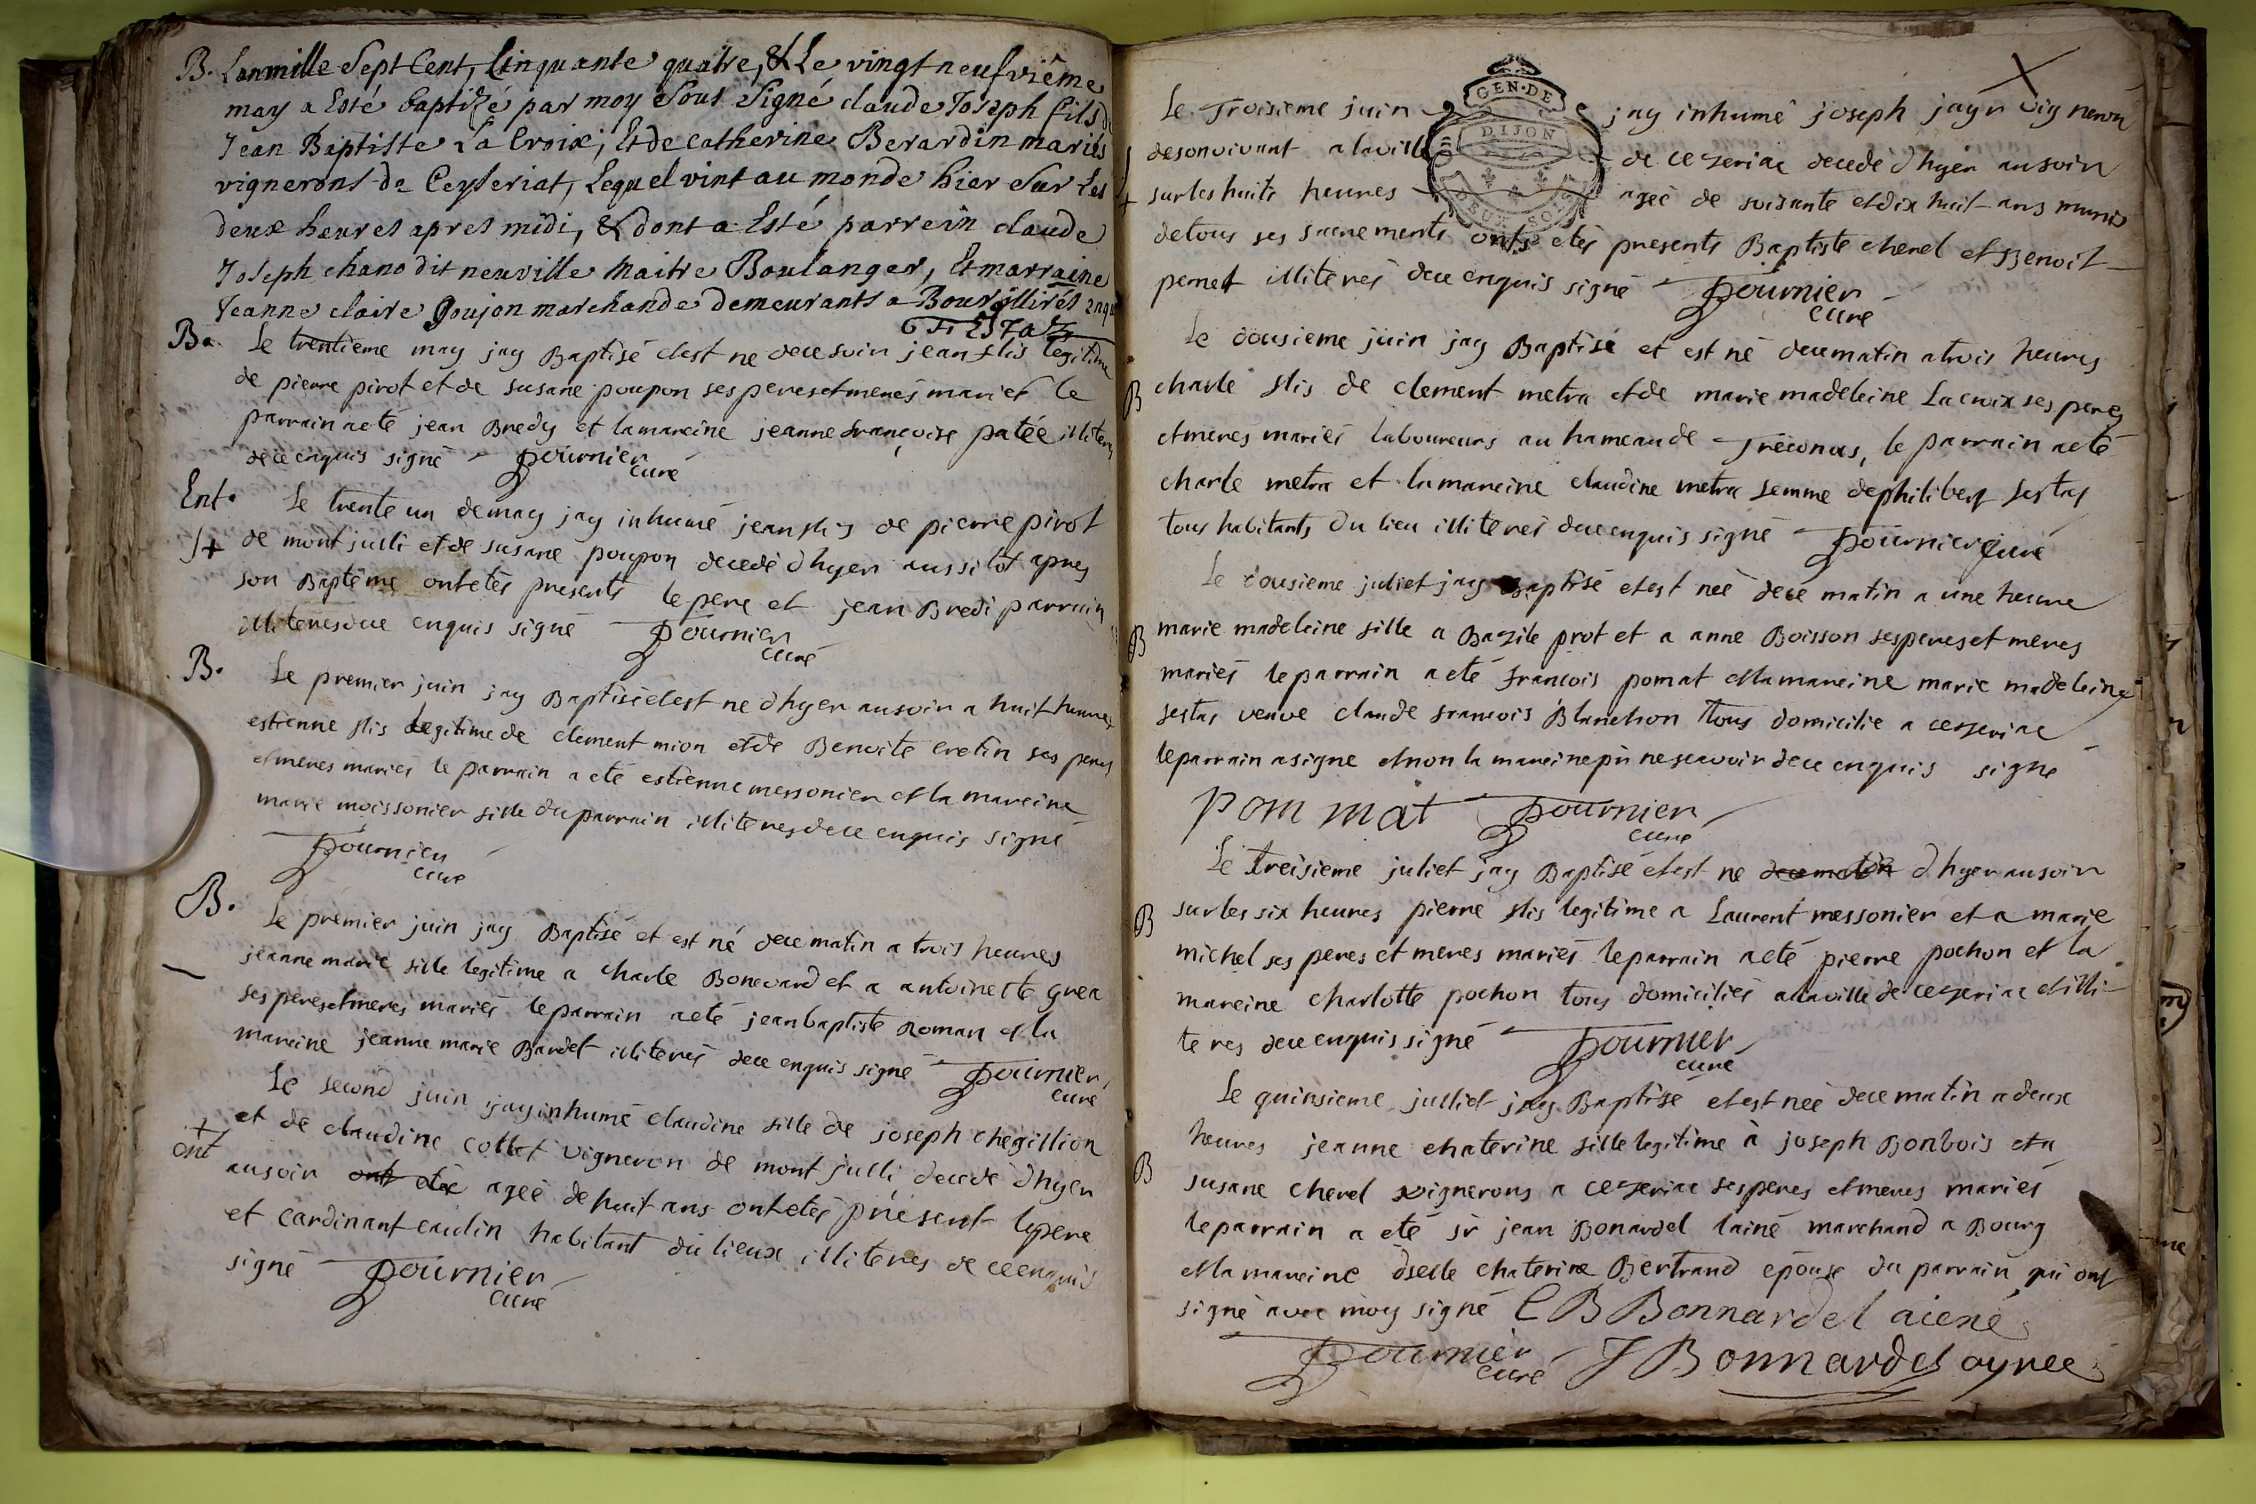 B. Lanmille Sept Cent, Cinquante quatre, & Le vingt neufviême
may a Esté baptizé par moy Sous Signé claude Joseph fils de
Jean Baptiste La Croix, Et de Catherine Berardin mariés
vignerons de Ceyseriat, Lequel vint au monde hier Sur Les
deux heures apres midi, & dont a Esté parrein claude
Joseph chano dit neuville Maitre Boulanger, Et marraine
Jeanne claire Goujon marchande demeurants a Bourg illirés
B. Le trentieme may jay Baptisé et est ne de ce soir jean fils legitime
de pierre pirot et de susane poupon ses peres et meres mariés le
parrain a eté jean Bredy et la mareine jeanne françoise patée illiteres
de ce enquis signé Fournier
curé
Ent. Le trente un de may jay inhumé jean fils de pierre pirot
de mont julli et de susane poupon decedé d'hyer aussitot apres
son Baptême ont etés presents le pere et jean Bredi parrain
illiteres de ce enquis signé Fournier
curé
B. Le premier juin jay Baptisé et est ne d'hyer au soir a huit heures
estienne fils legitime de clement mion et de Benoite cretin ses peres
et meres mariés le parrain a eté estienne messonier et la mareine
marie moissonier fille du parrain illiteres de ce enquis signé
Fournier
curé
B. Le premier juin jay Baptisé et est né de ce matin a trois heures
jeanne marie fille legitime a charle Bonevard et a antoinette grea
ses peres et meres mariés le parrain a eté jean baptiste Roman et la
mareine jeanne marie Bardet illiterés de ce enquis signé Fournier
curé
Le second juin jay inhumé claudine fille de joseph chegillion
et de claudine collet vigneron de mont julli decedé d'hyer
ont
au soir ont eté ageé de huit ans ont etés présent le pere
et cardinant caudin habitant du lieux illiteres de ce enquis
signé Fournier
curé
GEN. DE
DIJON
DEUX SOLS
Le Troisieme juin jay inhumé joseph jayr vigneron
de son vivant a la ville de cezeriac decedé d'hyer au soir
sur les huits heures ageé de soisante et dix huit ans munis
de tous ses sacrements onts etés presents Baptiste cherel et Benoit
pernet illiterés de ce enquis signé Fournier
curé
Le dousieme juin jay Baptisé et est né de ce matin a trois heures
B charle fils de clement metra et de marie madeleine Lacroix ses peres
et meres mariés laboureurs au hameau de Tréconas, le parrain a eté
charle metra et la mareine claudine metra femme de philibert sertas
tous habitants du lieu illiterés de ce enquis signé Fournier curé
Le dousieme juliet jay Baptisé et est neé de ce matin a une heure
B marie madeleine fille a Bazile prot et a anne Boisson ses peres et meres
mariés le parrain a eté francois pomat et la mareine marie madeleine
sertas veuve claude francois Blanchon tous domicilié a cezeriac
le parrain a signe et non la mareine pr ne scavoir de ce enquis signé
Pom mat Fournier
curé
Le treisieme juliet jay Baptisé et est ne de ce matin d'hyer au soir
B sur les six heures pierre fils legitime a Laurent messonier et a marie
michel ses peres et meres mariés le parrain a eté pierre pochon et la
mareine charlotte pochon tous domiciliés a la ville de cezeriac et illi-
teres de ce enquis signé Fournier
curé
Le quinsieme julliet jay Baptisé et est neé de ce matin a deux
heures jeanne chaterine fille legitime à joseph Bonbois et a
B susane cherel vignerons a cezeriac ses peres et meres mariés
le parrain a eté sr jean Bonardel lainé marchand a Bourg
et la mareine dselle chaterine Bertrand epouse du parrain qui ont
signé avec moy signé C B Bonnardel aiené
Fournier
curé
J Bonnardel aynee